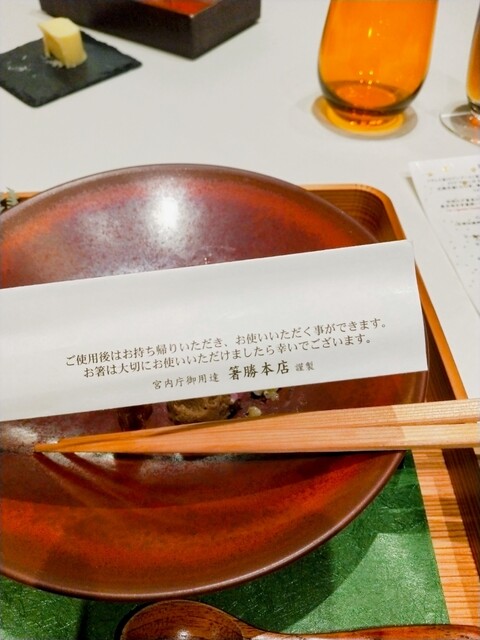 ご使用後はお持ち帰りいただき、お使いいただく事ができます。
お箸は大切にお使いいただけましたら幸いでございます。
宮内庁御用達 箸勝本店 謹製